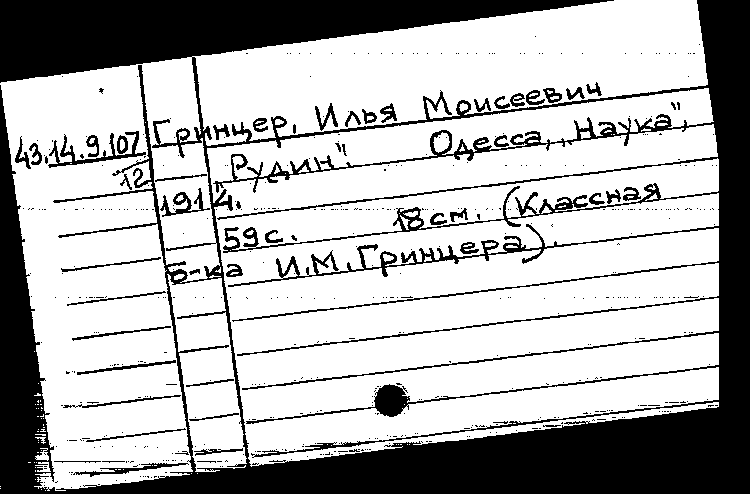 43.14.9.107/12
Гринцер, Илья Моисеевич
„Рудин". Одесса, „Наука",
1914.
59 с. 18 см. (Классная
б-ка И.М. Гринцера).